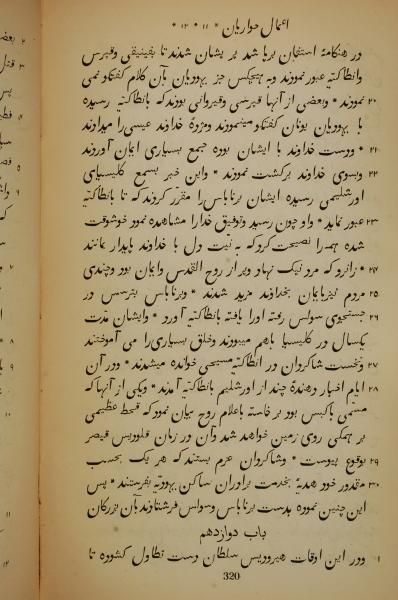 اعمال حواریان * ۱۱ * ۱۲ *
در هنگامهٔ استفان برپا شد بر ایشان شدند تا بفینیقی وقپرس
وانطاکیه عبور نمودند وبه هیچکس جز یهودیان بآن کلام گفتگو نمی
۲۰ نمودند * وبعضی از آنها قپرسی وقیروانی بودند که بانطاکیه رسیده
با یهودیان یونان گفتگو مینمودند ومژدهٔ خداوند عیسی را میدادند
۲۱ * ودست خداوند با ایشان بوده جمع بسیاری ایمان آوردند
۲۲ وبسوی خداوند برگشت نمودند * واین خبر بسمع کلیسیای
اورشلیمی رسیده ایشان برناباس را مقرر کردند که تا بانطاکیه
۲۳ عبور نماید * واو چون رسید وتوفیق خدا را مشاهده نمود خوشوقت
شده همه را نصیحت کرد که به نیت دل با خداوند پایدار بمانند
۲۴ * زانرو که مرد نیک نهاد وپر از روح القدس وایمان بود وچندی
۲۵ مردم نیز بایمان بخداوند مزید شدند * وبرناباس بترسس در
۲۶ جستجوی سولس رفته اورا یافته بانطاکیه آورد * وایشان مدت
یکسال در کلیسیا باهم میبودند وخلق بسیاری را می آموختند
۲۷ ونخست شاگردان در انطاکیه مسیحی خوانده میشدند * ودر آن
۲۸ ایام اخبار دهندهٔ چند از اورشلیم بانطاکیه آمدند * ویکی از آنها که
مسمی باگبس بود بر خاسته باعلام روح بیان نمود که قحط عظیمی
بر همگی روی زمین خواهد شد وآن در زمان قلودیس قیصر
۲۹ بوقوع پیوست * وشاگردان عزم بستند که هر یک بحسب
۳۰ مقدور خود هدیهٔ بخدمت برادران ساکن یهودیه بفرستند * پس
این چنین نموده بدست برناباس وسولس فرستادند بآن بزرگان
باب دوازدهم
۱ ودر این اوقات هیرودیس سلطان دست تطاول گشوده تا
320